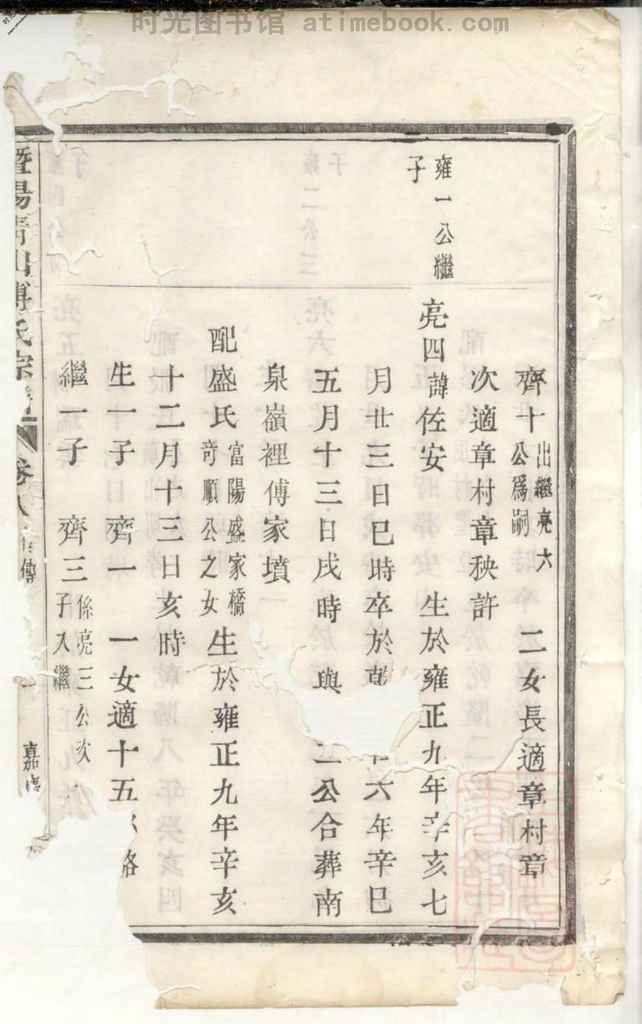 时光图书馆 atimebook.com
齊十 出繼亮六
公爲嗣 二女長適章村章
次適章村章秧許
雍一公繼
子
亮四諱佐安 生於雍正九年辛亥七
月廿三日巳時卒於 六年辛巳
五月十三日戌時 與 二公合葬南
泉嶺裡傅家墳
配盛氏 富陽盛家橋
奇順公之女 生於雍正九年辛亥
十二月十三日亥時
生一子 齊一 一女適十五 路
繼一子 齊三 係亮三公次
子入繼
暨陽 山傅氏宗 卷八 傳 嘉